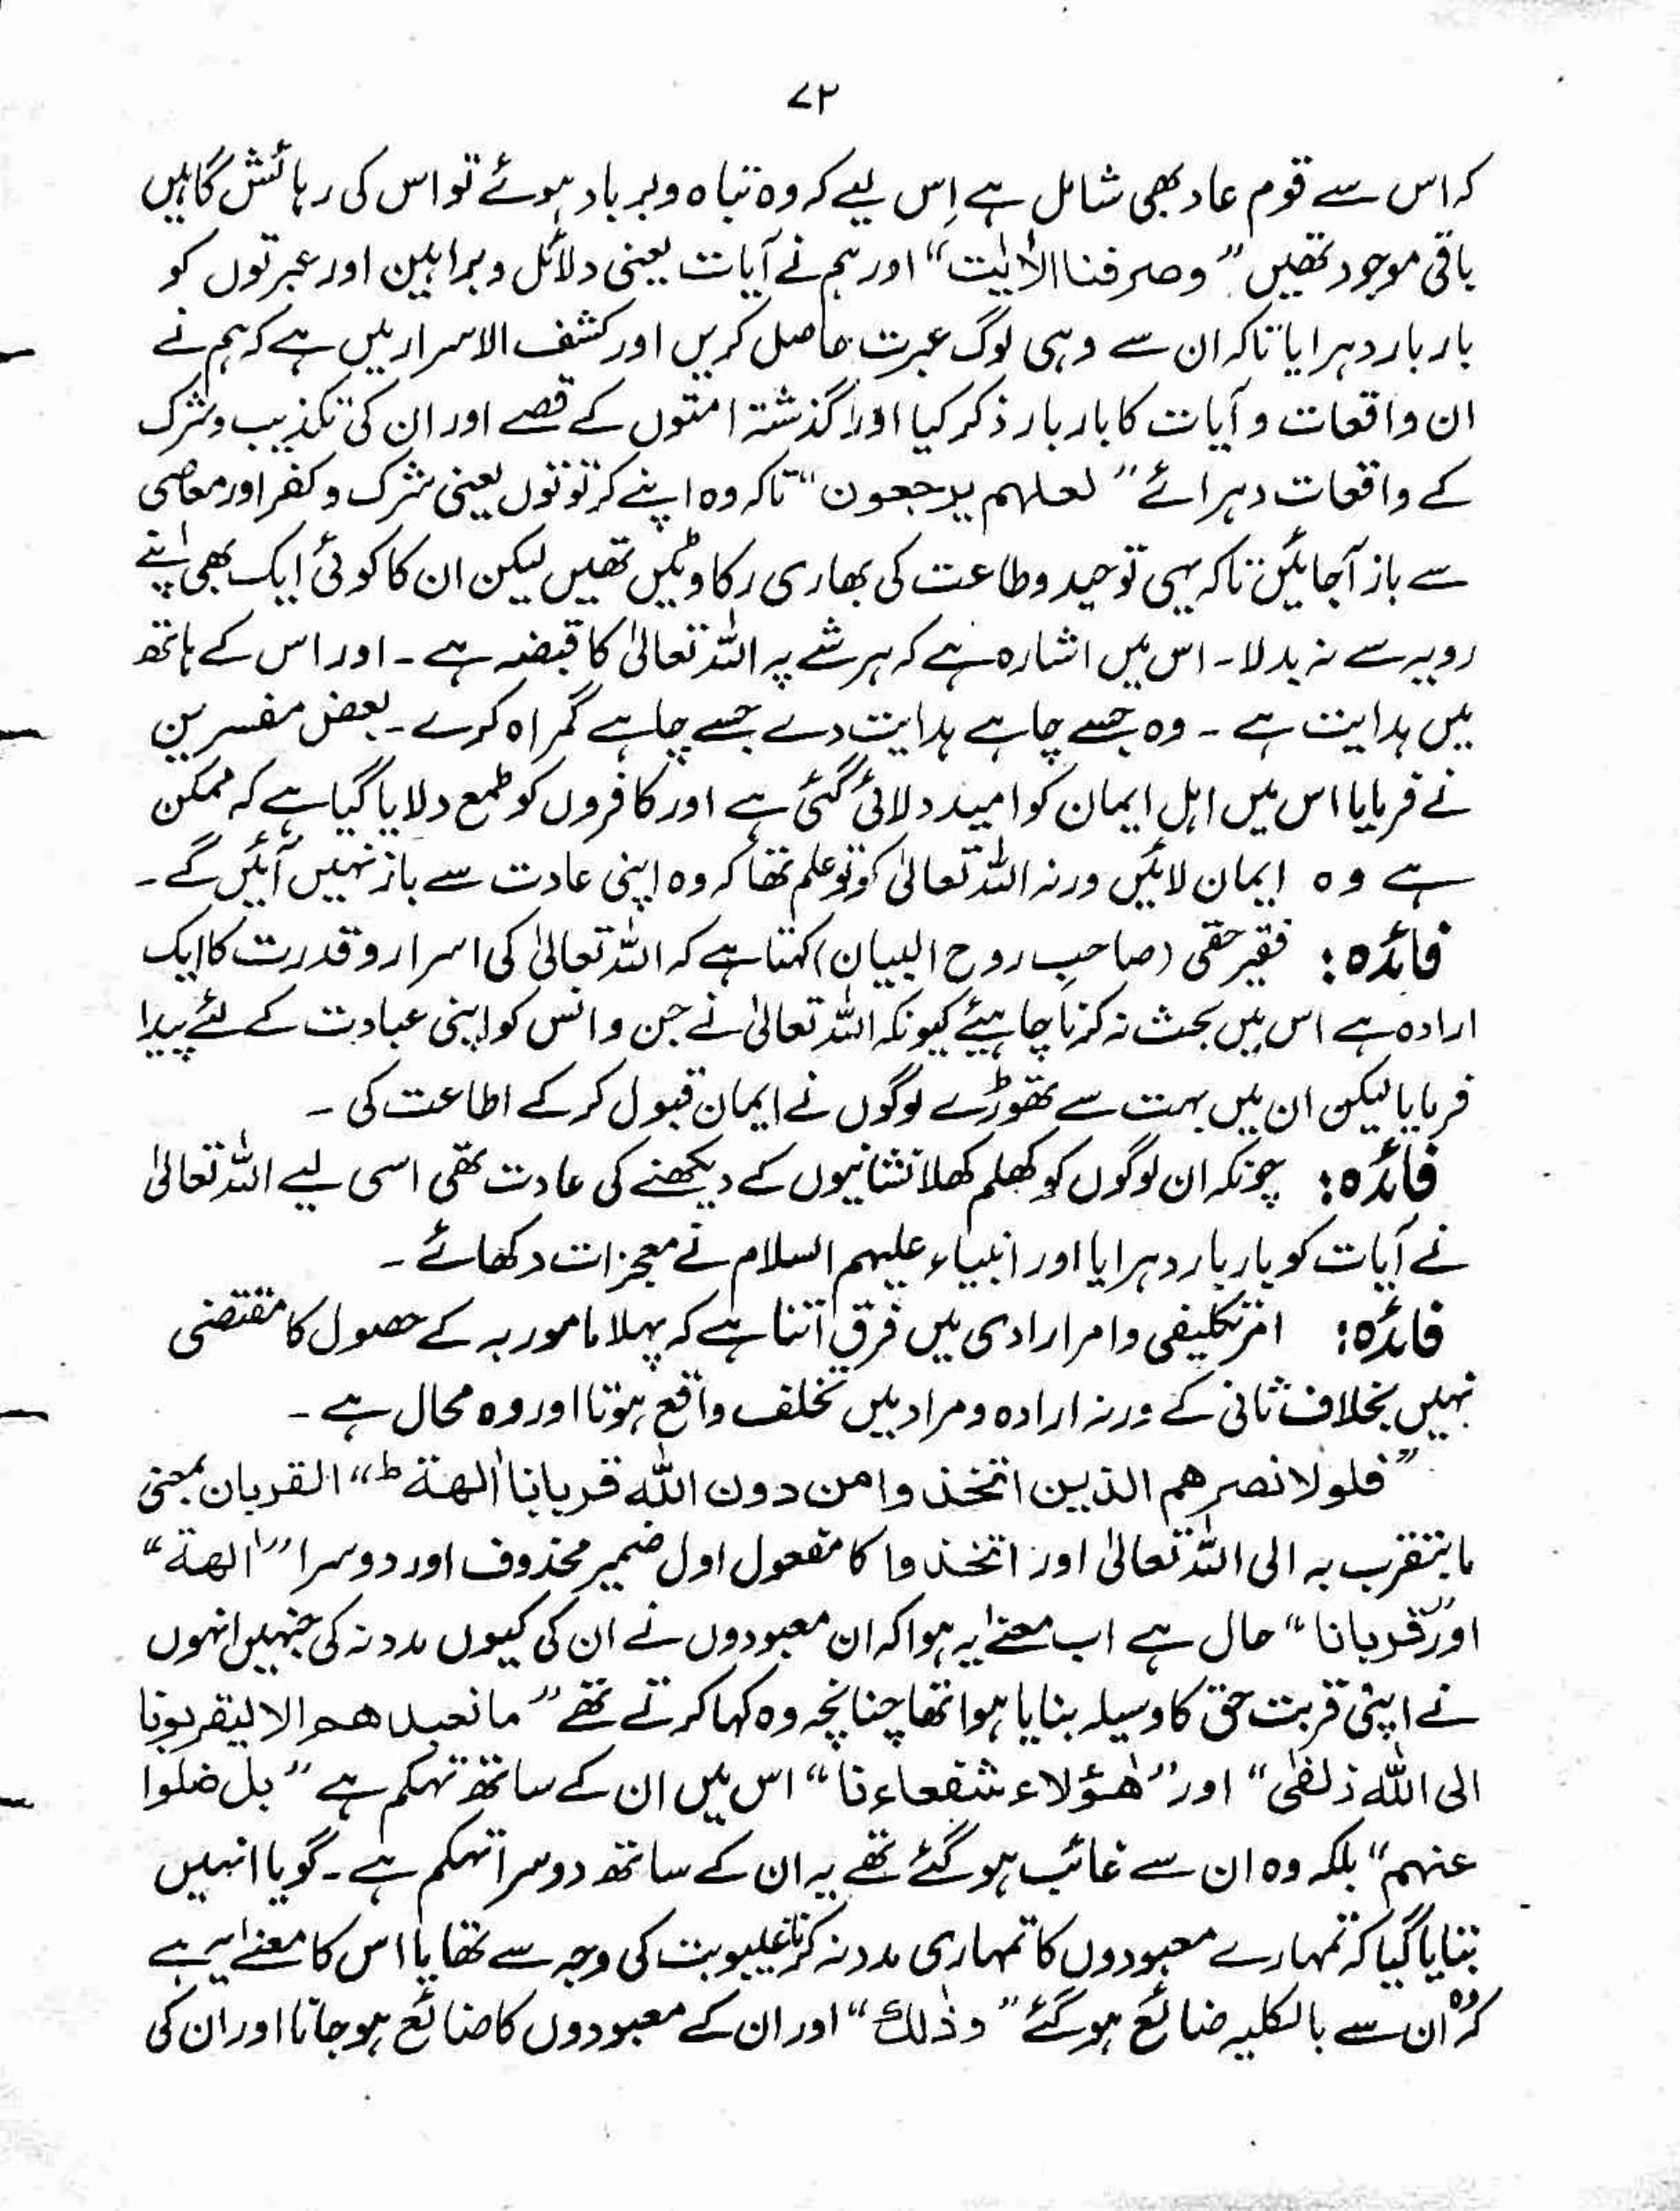 ۷۳
کہ اس سے قوم عاد بھی شامل ہے اِس لیے کہ وہ تباہ و برباد ہوئے تو اس کی رہائش گاہیں
باقی موجود تھیں ” وصرفنا الاٰیٰت “ اور ہم نے آیات یعنی دلائل و براہین اور عبرتوں کو
بار بار دہرایا تاکہ ان سے وہی لوگ عبرت حاصل کریں اور کشف الاسرار میں ہے کہ ہم نے
ان واقعات و آیات کا بار بار ذکر کیا اور گذشتہ امتوں کے قصے اور ان کی تکذیب و شرک
کے واقعات دہرائے ” لعلہم یرجعون “ تاکہ وہ اپنے کرتوتوں یعنی شرک و کفر اور معاصی
سے باز آجائیں تاکہ یہی توحید و طاعت کی بھاری رکاوٹیں تھیں لیکن ان کا کوئی ایک بھی اپنے
رویہ سے نہ بدلا ۔ اس میں اشارہ ہے کہ ہر شے پہ اللہ تعالیٰ کا قبضہ ہے ۔ اور اس کے ہاتھ
میں ہدایت ہے ۔ وہ جسے چاہے ہدایت دے جسے چاہے گمراہ کرے ۔ بعض مفسرین
نے فرمایا اس میں اہل ایمان کو امید دلائی گئی ہے اور کافروں کو طمع دلایا گیا ہے کہ ممکن
ہے وہ ایمان لائیں ورنہ اللہ تعالیٰ کو تو علم تھا کہ وہ اپنی عادت سے باز نہیں آئیں گے ۔
فائدہ : فقیر حقی (صاحب روح البیان) کہتا ہے کہ اللہ تعالیٰ کی اسرار و قدرت کا ایک
ارادہ ہے اس میں بحث نہ کرنا چاہیئے کیونکہ اللہ تعالیٰ نے جن و انس کو اپنی عبادت کے لئے پیدا
فرمایا لیکن ان میں بہت سے تھوڑے لوگوں نے ایمان قبول کر کے اطاعت کی ۔
فائدہ : چونکہ ان لوگوں کو کھلم کھلا نشانیوں کے دیکھنے کی عادت تھی اسی لیے اللہ تعالیٰ
نے آیات کو بار بار دہرایا اور انبیاء علیہم السلام نے معجزات دکھائے ۔
فائدہ : امر تکلیفی و امر ارادی میں فرق اتنا ہے کہ پہلا مامور بہ کے حصول کا مقتضی
نہیں بخلاف ثانی کے ورنہ ارادہ و مراد میں تخلف واقع ہوتا اور وہ محال ہے ۔
” فلولا نصرھم الذین اتخذوا من دون اللہ قربانا اٰلھة ط “ القربان بمعنی
ما یتقرب بہ الی اللہ تعالیٰ اور اتخذوا کا مفعول اول ضمیر محذوف اور دوسرا ” اٰلھة “
اور ” قربانا “ حال ہے اب معنےٰ یہ ہوا کہ ان معبودوں نے ان کی کیوں مدد نہ کی جنہیں انہوں
نے اپنی قربت حق کا وسیلہ بنایا ہوا تھا چنانچہ وہ کہا کرتے تھے ” ما نعبدھم الا لیقربونا
الی اللہ زلفٰی “ اور ” ھٰؤلاء شفعاءنا “ اس میں ان کے ساتھ تہکم ہے ” بل ضلوا
عنہم “ بلکہ وہ ان سے غائب ہو گئے تھے یہ ان کے ساتھ دوسرا تہکم ہے ۔ گویا انہیں
بتایا گیا کہ تمہارے معبودوں کا تمہاری مدد نہ کرنا غیبوبت کی وجہ سے تھا یا اس کا معنےٰ یہ ہے
کہ وہ ان سے بالکلیہ ضائع ہو گئے ” وذٰلك “ اور ان کے معبودوں کا ضائع ہو جانا اور ان کی